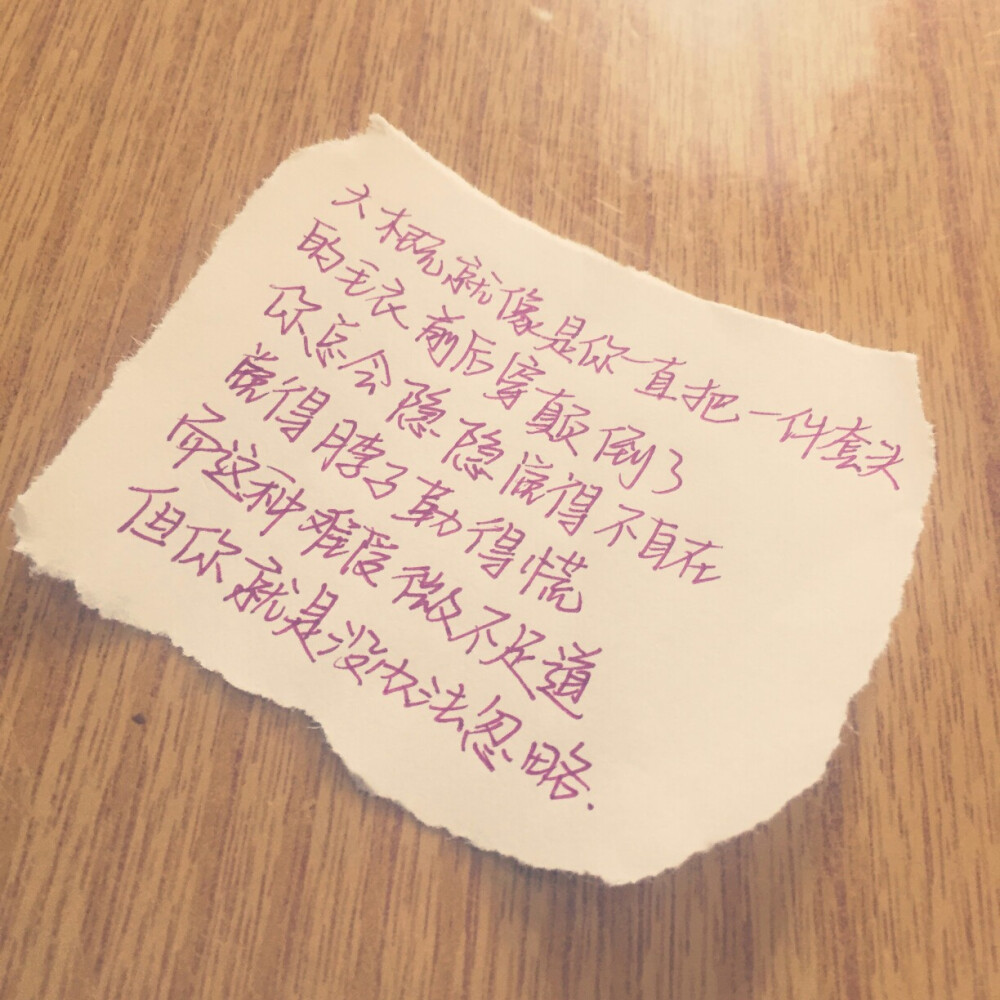 大概就像是你一直把一件套头
的毛衣前后穿颠倒了
你总会隐隐觉得不自在
觉得脖子勒得慌
而这种难受微不足道
但你就是没办法忽略.